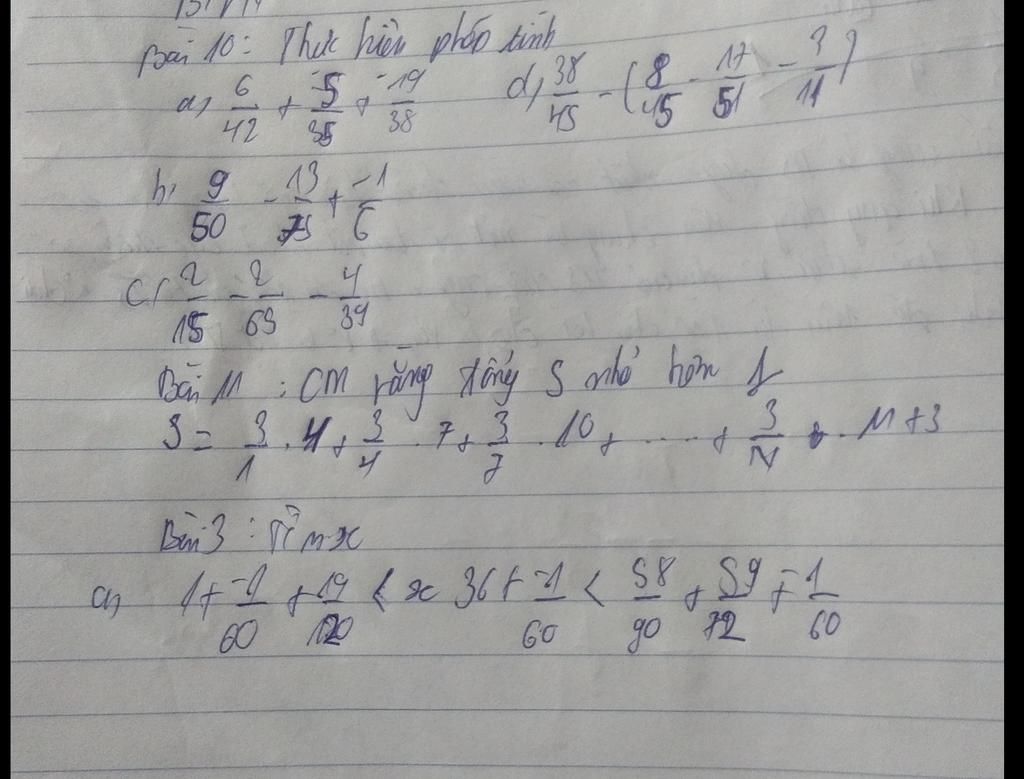 Bài 10: Thực hiện phép tính
a, 6/42 + -5/35 + -19/38 d, 38/45 - (8/45 - 17/51 - 3/11)
b, 9/50 - 13/75 + -1/6
c, 2/15 - 2/65 - 4/39
Bài 11: CM rằng tổng S nhỏ hơn 1
S = 3/1 . 4 + 3/4 . 7 + 3/7 . 10 + ..... + 3/N . N + 3
Bài 3: Tìm x
a, 1 + -1/60 + 19/120 < x 36 + -1/60 < 58/90 + 59/72 + -1/60